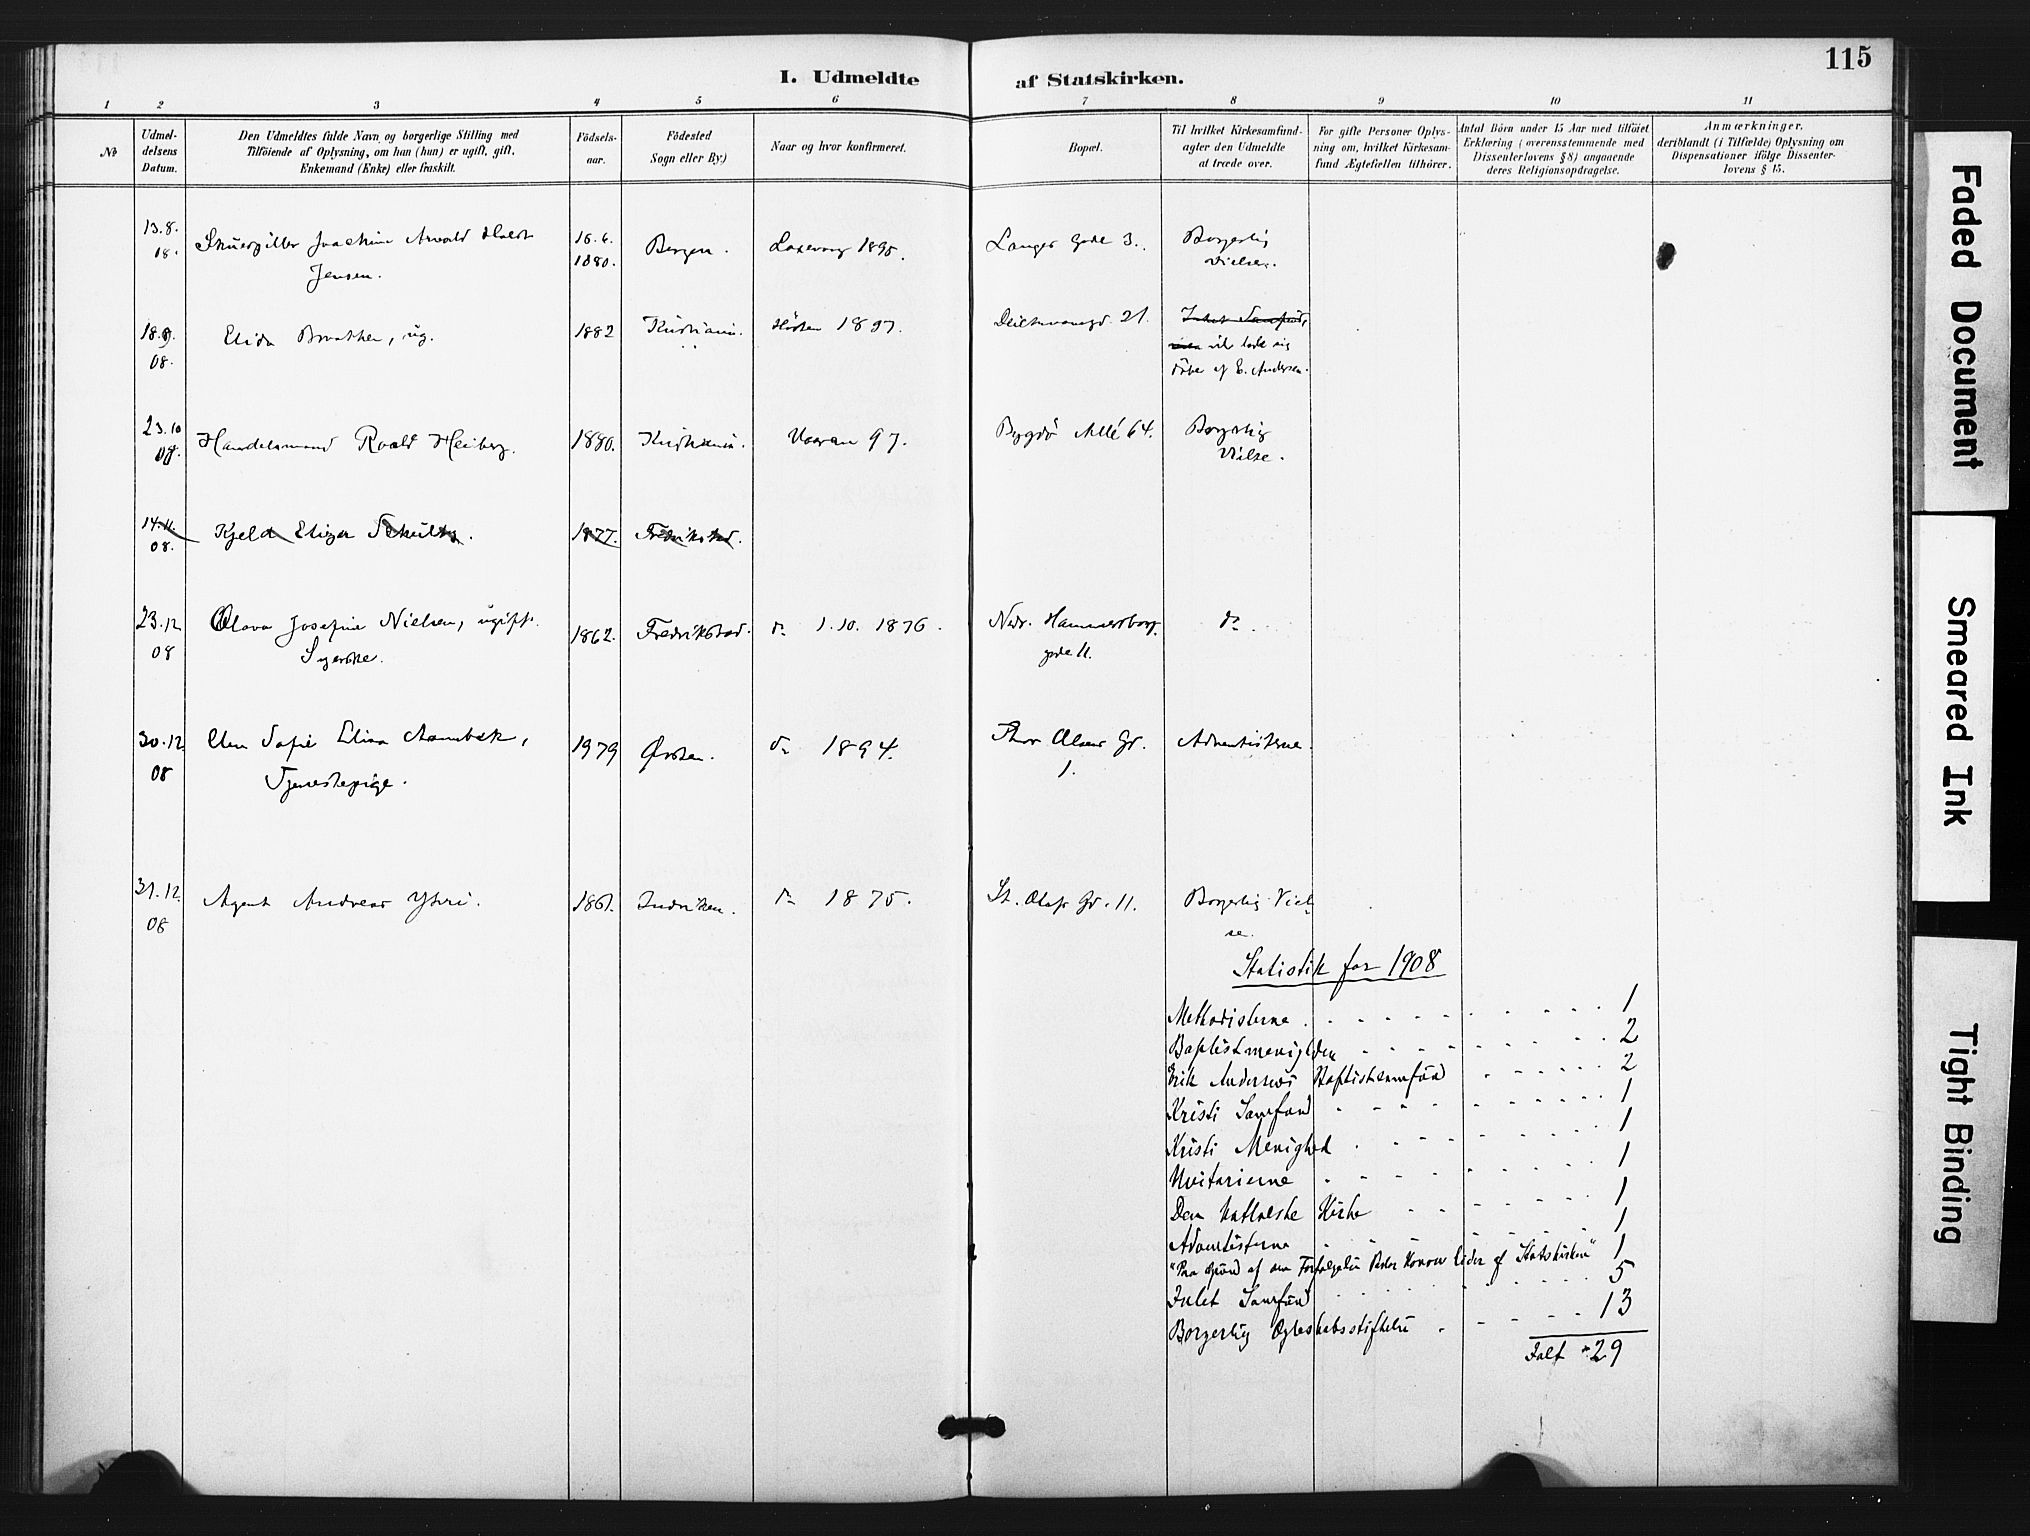 115
I. Udmeldte af Statskirken.
1 2 3 4 5 6 7 8 9 10 11
No
Udmel-
delsens
Datum.
Den Udmeldtes fulde Navn og borgerlige Stilling med
Tilföiende af Oplysning, om han (hun) er ugift, gift,
Enkemand (Enke) eller fraskilt.
Födsels-
aar.
Födested
Sogn eller By.)
Naar og hvor konfirmeret.
Bopæl.
Til hvilket Kirkesamfund
agter den Udmeldte
at træde over.
For gifte Personer Oplys-
ning om, hvilket Kirkesam-
fund Ægtefællen tilhörer.
Antal Börn under 15 Aar med tilföiet
Erklæring (overensstemmende med
Dissenterlovens § 8) angaaende
deres Religionsopdragelse.
Anmærkninger.
deriblandt (i Tilfælde) Oplysning om
Dispensationer ifölge Dissenter-
lovens § 15.
13.8. 08. Skuespiller Joachim Arvald Holst
Jensen. 16.6. 1880. Bergen. Laxevaag 1895. Langes Gade 3. Borgerlig
Vielse.
18.9. 08. Elida Braathen, ug. 1882 Kristiania. Høsten 1897. Deichmansgd. 21. Intet Samfund,
vil lade sig
døbe af E. Andersen.
23.10 08. Handelsmand Roald Heiberg. 1880. Kristiania. Vaaren 97. Bygdø Allé 64. Borgerlig
Vielse.
14.11. 08. Kjeld Eliza Schultz. 1877. Fredrikstad.
23.12 08 Olava Josefine Nielsen, ugift.
Syerske. 1862. Fredrikstad. do 1.10. 1876. Nedr. Hammersborg
gade 11. do
30.12 08 Elen Sofie Elisa Aambak,
Tjenestepige. 1979 Ørsten. do 1894. Thor Olsens Gd.
1. Adventisterne.
31.12 08 Agent Andreas Ytrri. 1861. Indviken. do 1875. St. Olafs Gd. 11. Borgerlig Viel-
se.
Statistik for 1908
Methodisterne 1
Baptistmenigheden 2
Erik Andersens Baptistsamfund 2
Kristi Samfund 1
Kristi Menighed 1
Unitarierne 1
Den katholske Kirke 1
Adventisterne 1
"Paa Grund af den Forfølgelse Peder Konow lider af Statskirken" 1
Intet Samfund 5
Borgerlig Ægteskabsstiftelse 13
Ialt 29
Faded Document
Smeared Ink
Tight Binding